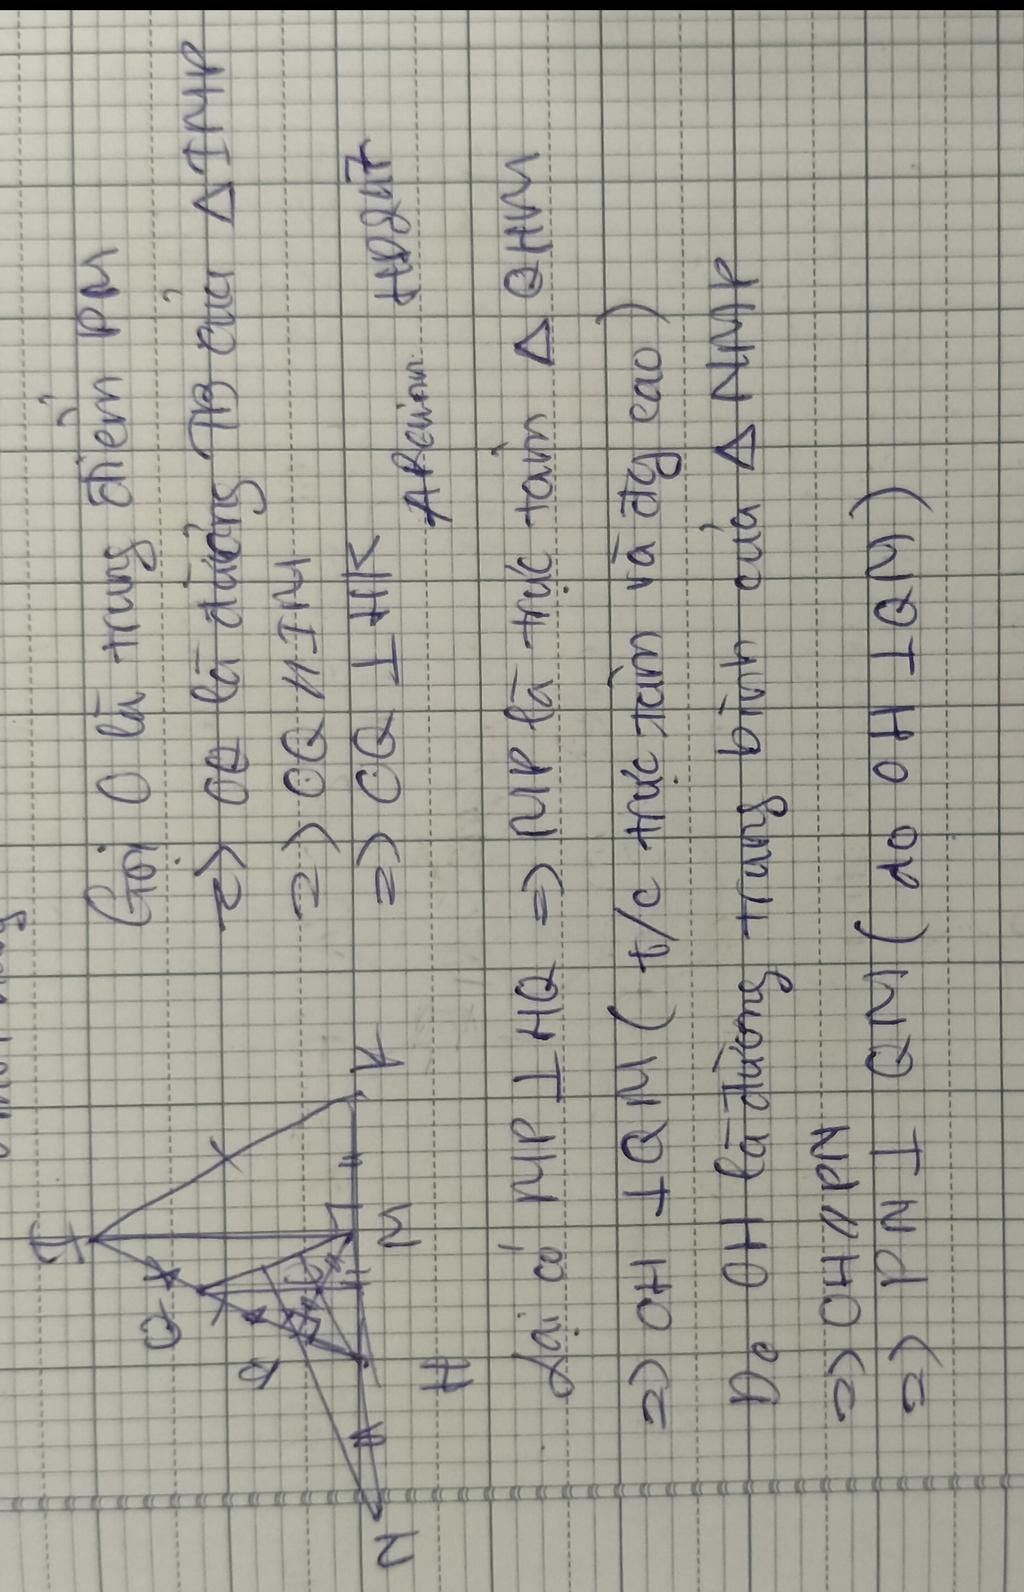 Gọi O là trung điểm PM
=> OQ là đường TB của △IMP
=> OQ // IM
=> OQ ⊥ HK
I
Q
P
N
H
M
K
Lại có MP ⊥ HQ => MP là trực tâm △ QHM
=> OH ⊥ QM ( t/c trực tâm và đg cao )
Do OH là đường trung bình của △ NMP
=> OH // PN
=> PN ⊥ QM ( do OH ⊥ QM )